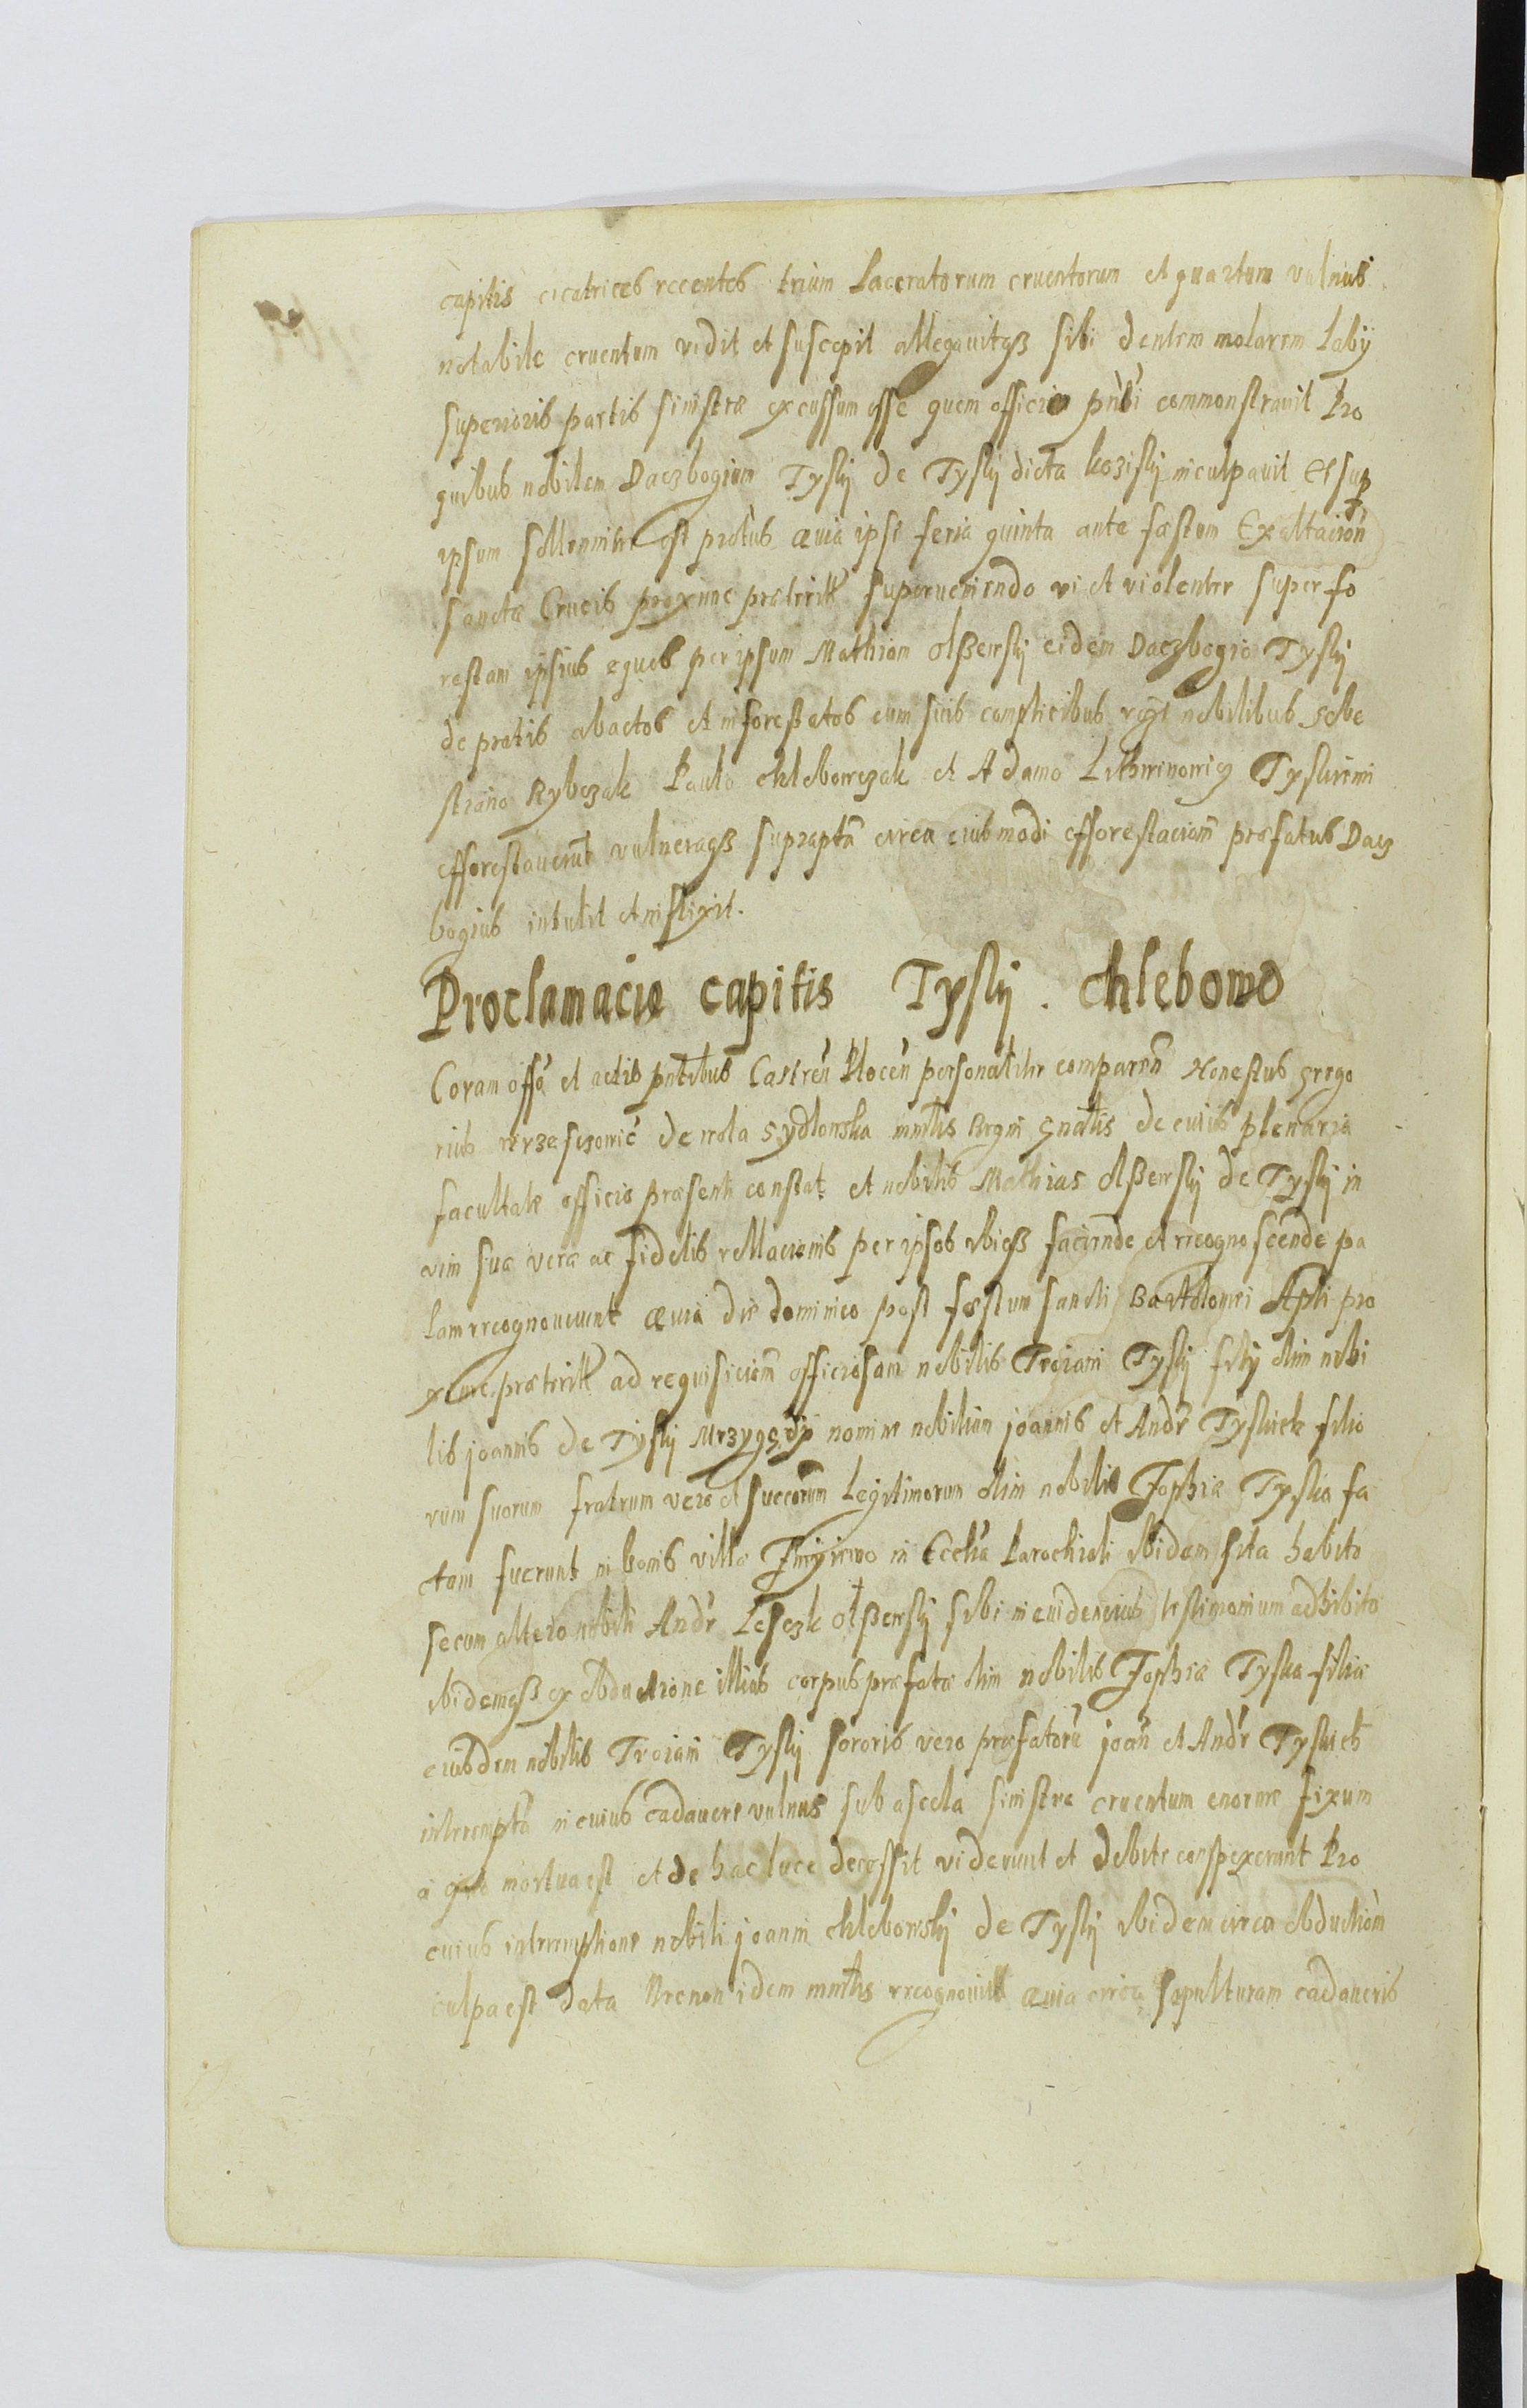 capitis cicatrices recentes trium Laceratorum cruentorum et quartum vulnus
notabile cruentum vidit et suscepit allegavitqз sibi dentem molarem Labÿ
superioris partis sinistræ excussum esse quem officio pñti commonstravit Pro
quibus nobilem Daczbogium Tysky de Tysky dicta kozisky inculpavit Et sup
ipsum sollenniter est prõtus quia ipse feria quinta ante fæstum Exaltacioñ
sanctæ Crucis proxime præterite superueniendo vi et violenter super fo
restam ipsius equos per ipsum Mathiam olszewsky eidem Daczbogio Tysky
de pratis abactos et inforestatos cum suis complicibus nobilibus Seba
stiano Rybczak Paulo chlebowczak et Adamo Lithwinowicz Tyskiemi
efforestauerũt vulneraqз supraptã circa eiusmodi efforestacionẽ præfatus Dacz
bogius intulit et inflixit.
Proclamacia capitis Tysky . chlebowo
Coram offõ et actis pñtibus Castreñ Plocen personaliter compareñ Honestus grego
rius de wola Sydlowska mñtlis Regni gñalis de cuius plenaria
facultate officio præsenti constat et nobilis Mathias olszewsky de Tysky in
vim suæ veræ ac fidelis rellacionis per ipsos ibiqз faciendæ et recognoscendæ pa
lam recognoverunt quia die dominico post fæstum sancti Bartolomei Apli pro
xime præterite ad requisicionẽ officiosam nobilis Troiani Tysky filÿ olim nobi
lis joannis de Tysky Mrzyglody nomine nobilium joannis et Andr Tyskiek filio
rum suorum fratrum vero et succorum Legitimorum olim nobilis Zophiæ Tyska fa
ctam fuerunt in bonis villæ in Eccłia Parochiali ibidem sita habito
secum altero nobili Andr Lesczk olszewsky sibi in evidencius testimonium adhibito
ibidemqз ex obductione illius corpus præfatæ olim nobilis Zophiæ Tyska filiæ
eiusdem nobilis Troiani Tysky sororis vero præfatorũ joañ et Andr Tyskick
interemptã in cuius cadavere vulnus sub ascela sinistra cruentum enorme fixum
a quo mortua est et de hac luce decessit viderunt et debite conspexerunt Pro
cuius interemptione nobili joanni chlebowsky de Tysky ibidem circa obductionẽ
culpa est data Necnon idem mñtlis recognovit quia circa sepulturam cadaveris